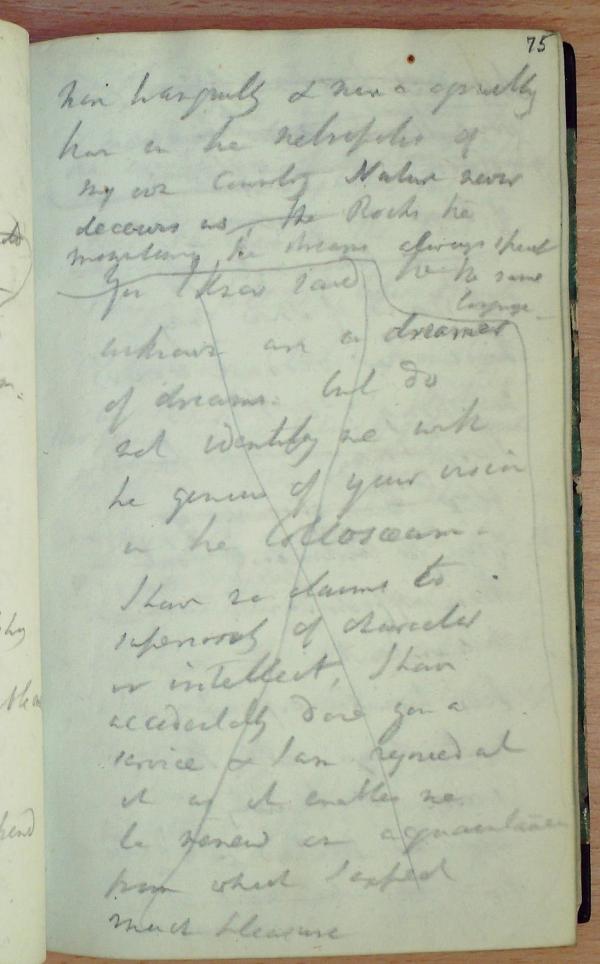 75
than tranquility & never agreeably
than in the metropolis of
my own Country Nature never
deceives us, the Rocks the
mountains, the streams always speak
the same
language
Yes I have said
unknown are a dreamer
of dreams. but do
not identify me with
the genius of your vision
in the Colloseum.
I have no claims to
superiority of character
or intellect, I have
accidentally done you a
service & I am rejoiced at
it as it enables me
to renew an acquaintance
from which I expect
much pleasure